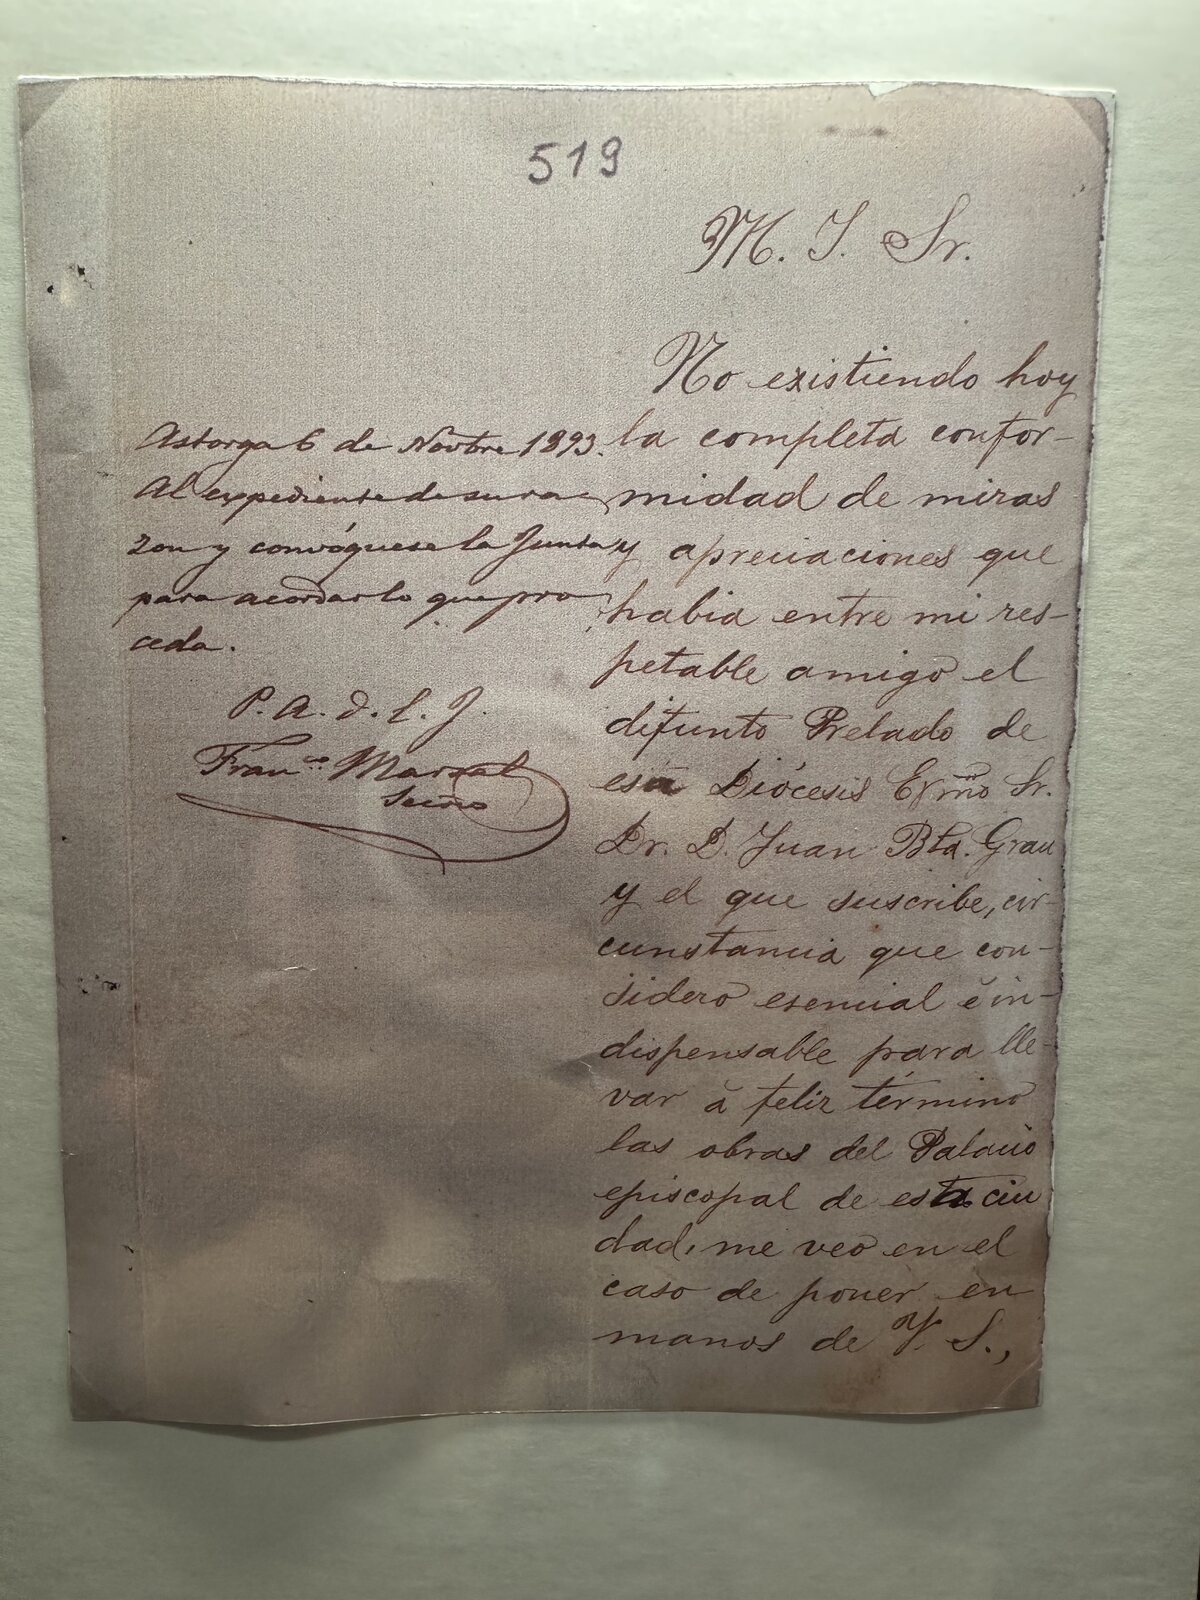 519
M. I. Sr.
No existiendo hoy
la completa confor-
midad de miras
y apreciaciones que
habia entre mi res-
petable amigo el
difunto Prelado de
esa Diócesis Exmo Sr.
Dr. D. Juan Bta. Grau
y el que suscribe, cir-
cunstancia que con-
sidero esencial é in-
dispensable para lle-
var á feliz término
las obras del Palacio
episcopal de esta ciu
dad, me veo en el
caso de poner en
manos de V. S.,
Astorga 6 de Novbre 1893.
Al expediente de su ra-
zon y convóquese la Junta
para acordar lo que pro
ceda.
P. A. d. l. J.
Franco
Srio